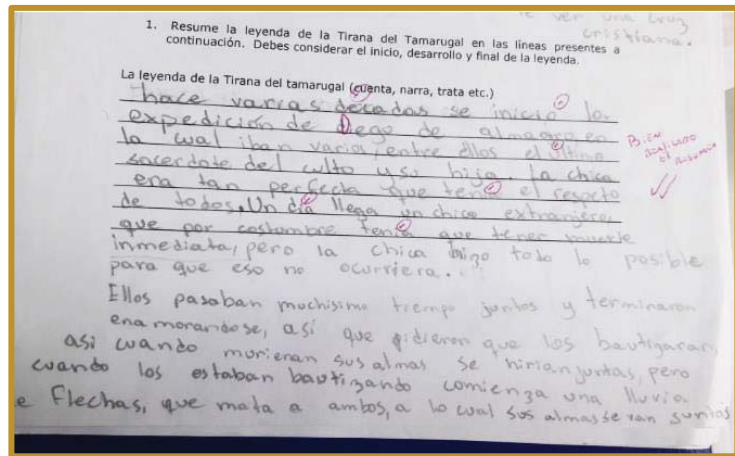 te ver una cruz
cristiana.
1. Resume la leyenda de la Tirana del Tamarugal en las líneas presentes a
continuación. Debes considerar el inicio, desarrollo y final de la leyenda.
La leyenda de la Tirana del tamarugal (cuenta, narra, trata etc.)
hace varias decadas se inició la
expedición de Diego de almagro en
la cual iban varios, entre ellos el último
sacerdote del culto y su hija. La chica
Bien
realizado
el resumen
era tan perfecta que tenía el respeto
de todos. Un día llega un chico extranjero,
que por costumbre tenía que tener muerte
inmediata, pero la chica hizo todo lo posible
para que eso no ocurriera.
Ellos pasaban muchisimo tiempo juntos y terminaron
enamorandose, así que pidieron que los bautizaran,
asi cuando murieran sus almas se hirian juntas, pero
cuando los estaban bautizando comienza una lluvia
e Flechas, que mata a ambos, a lo cual sus almas se van juntas